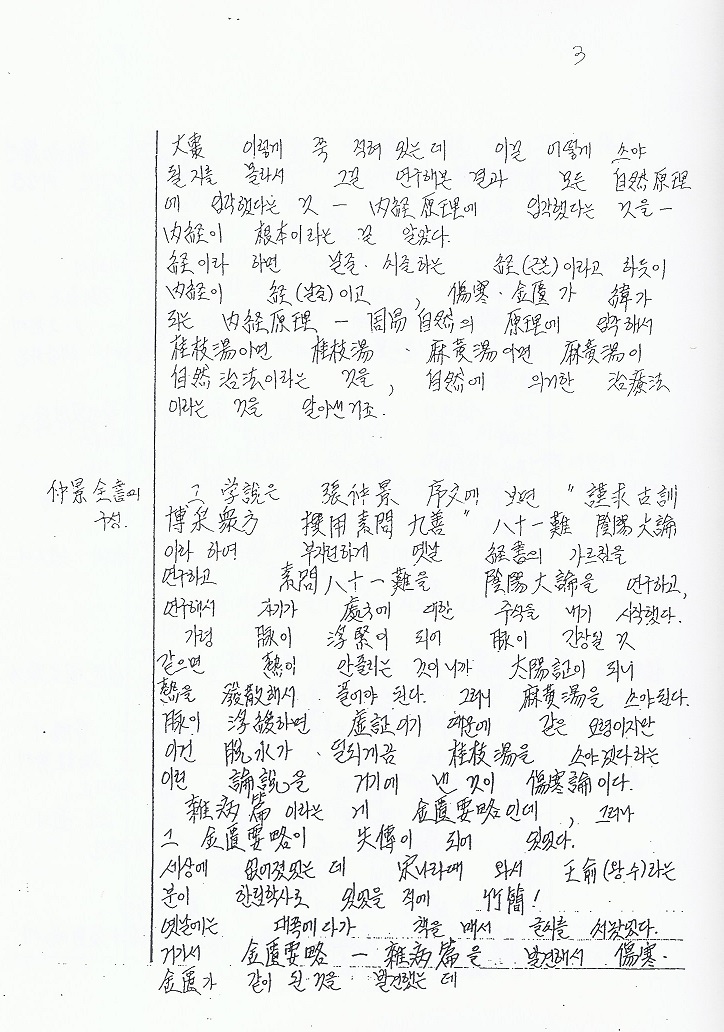 3
大棗 이렇게 쭉 적혀 있는데 이걸 어떻게 쓰야
될지를 몰라서 그걸 연구해본 결과 모든 自然原理
에 입각했다는 것 — 內経原理에 입각했다는 것을 —
內経이 根本이라는 걸 알았다.
経이라 하면 날줄·씨줄하는 経(근본)이라고 하듯이
內経이 経(날줄)이고 , 傷寒·金匱가 緯가
되는 內経原理 — 周易自然의 原理에 입각해서
桂枝湯이면 桂枝湯 · 麻黃湯이면 麻黃湯이
自然治法이라는 것을 , 自然에 의거한 治療法
이라는 것을 알아낸거죠.
仲景全書의
구성.
그 学說은 張仲景 序文에 보면 "謹求古訓
博采衆方 撰用素問九善" 八十一難 陰陽大論
이라 하여 부지런하게 옛날 経書의 가르침을
연구하고 素問八十一難을 陰陽大論을 연구하고,
연구해서 자기가 處方에 대한 주석을 내기 시작했다.
가령 脈이 浮緊이 되어 脈이 긴장될 것
같으면 熱이 안풀리는 것이니까 太陽証이 되니
熱을 發散해서 풀어야 된다. 그러니 麻黃湯을 쓰야된다.
脈이 浮緩하면 虛証이기 때문에 같은 요령이지만
이건 脫水가 덜되게끔 桂枝湯을 쓰야겠다라는
이런 論說을 거기에 낸 것이 傷寒論이다.
雜病篇이라는 게 金匱要略인데 , 그러나
그 金匱要略이 失傳이 되어 있었다.
세상에 없어졌었는데 宋나라때 와서 王俞(왕수)라는
분이 한림학사로 있었을 적에 竹簡!
옛날에는 대쪽에다가 책을 매서 글씨를 써놨었다.
거기서 金匱要略 — 雜病篇을 발견해서 傷寒·
金匱가 같이 된 것을 발견했는데